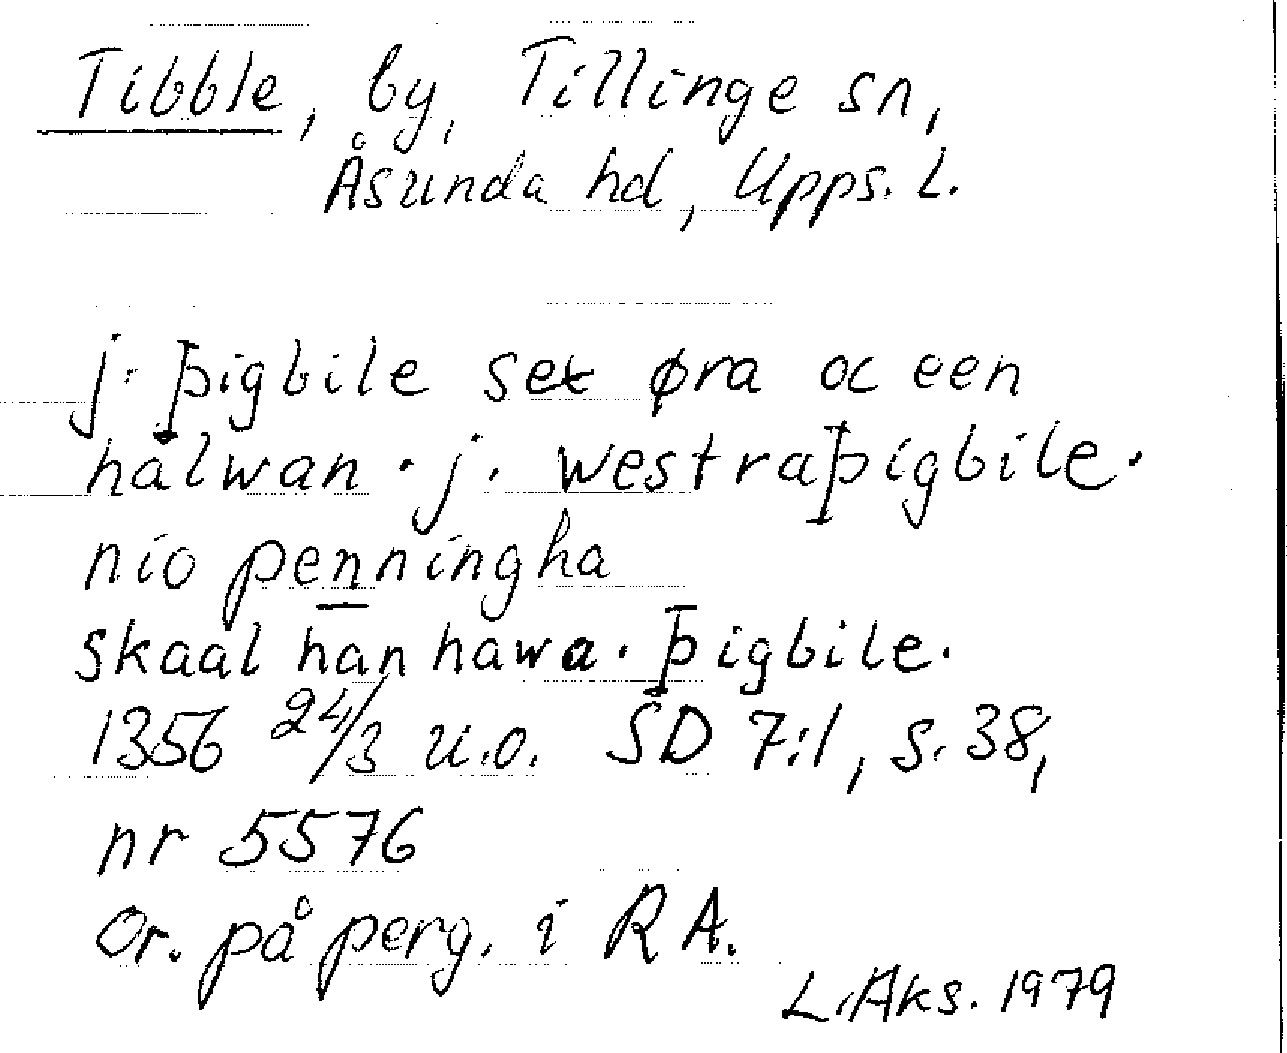 Tibble, by, Tillinge sn,
Åsunda hd, Upps. l.
j· þigbile sex øra oc een
halwan · j. westraþigbile·
nio penningha
skaal han hawa · þigbile.
1356 24/3 u.o. SD 7:1, s. 38,
nr 5576
Or. på perg. i RA.
L. Aks. 1979